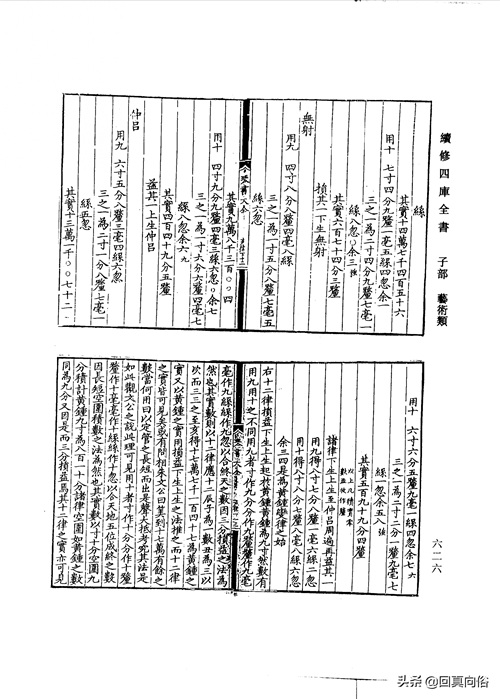 續修四庫全書 子部 藝術類
六二六
絲
其實十四萬七千四百五十六
用十 七寸四分九釐一毫五絲四忽余
三之一為二寸四分九釐七毫一
絲八忽〇余三強
其實六百七十四分三釐
損其一下生無射
無射
用九 四寸八分八釐四毫八絲
三之一為一寸五分八釐七毫五
絲六忽
其實九萬八千三百〇〇四
用十 四寸九分九釐四毫三絲六忽余七
三之一為一寸六分六釐四毫七
絲八忽余六
其實四百四十九分五釐
益其一上生仲呂
仲呂
用九 六寸五分八釐三毫四絲六忽
三之一為二寸一分八釐七毫一
絲五忽
其實十三萬一千〇〇七十二
用十 六寸六分五釐九毫一絲四忽余七
三之一為二寸二分一釐九毫七
絲一忽余五八強
其實五百九十九分四釐
諸律下生上生至仲呂周過再益其一
用九得八寸七分八釐一毫六絲二忽
用十得八寸八分七釐八毫八絲六忽
余三四是為黃鍾變律之始
右十二律損益下生上生起於黃鍾黃鍾為九寸然數有
用九用十之不同用九者寸作九分分作九釐釐作九毫
毫作九絲絲作九忽以合終天之數因三分損益之法為
然也其實數則以十二律應十二辰子為一數丑為三以
次而三三之至亥得十七萬七千一百四十七為黃鍾之
實又以黃鍾之實用損益下生上生之法推之而十二律
之實皆可見矣或有問相朱文公曰黃鍾十七萬有餘之
數當何用曰以定管之長短而出是聲大抵考究其法是
如此觀文公之說此理可見用十者寸作十分分作十釐
釐作十毫毫作十絲絲作十忽以合天地五位成終之數
因長短空圍積數之法為然也其實數以寸十分空圍九
分積計黃鍾九寸為八百一十分諸律空圍如黃鍾之數
同為九分又因是而三分損益焉其十二律之實亦可見
头条 @回真向俗